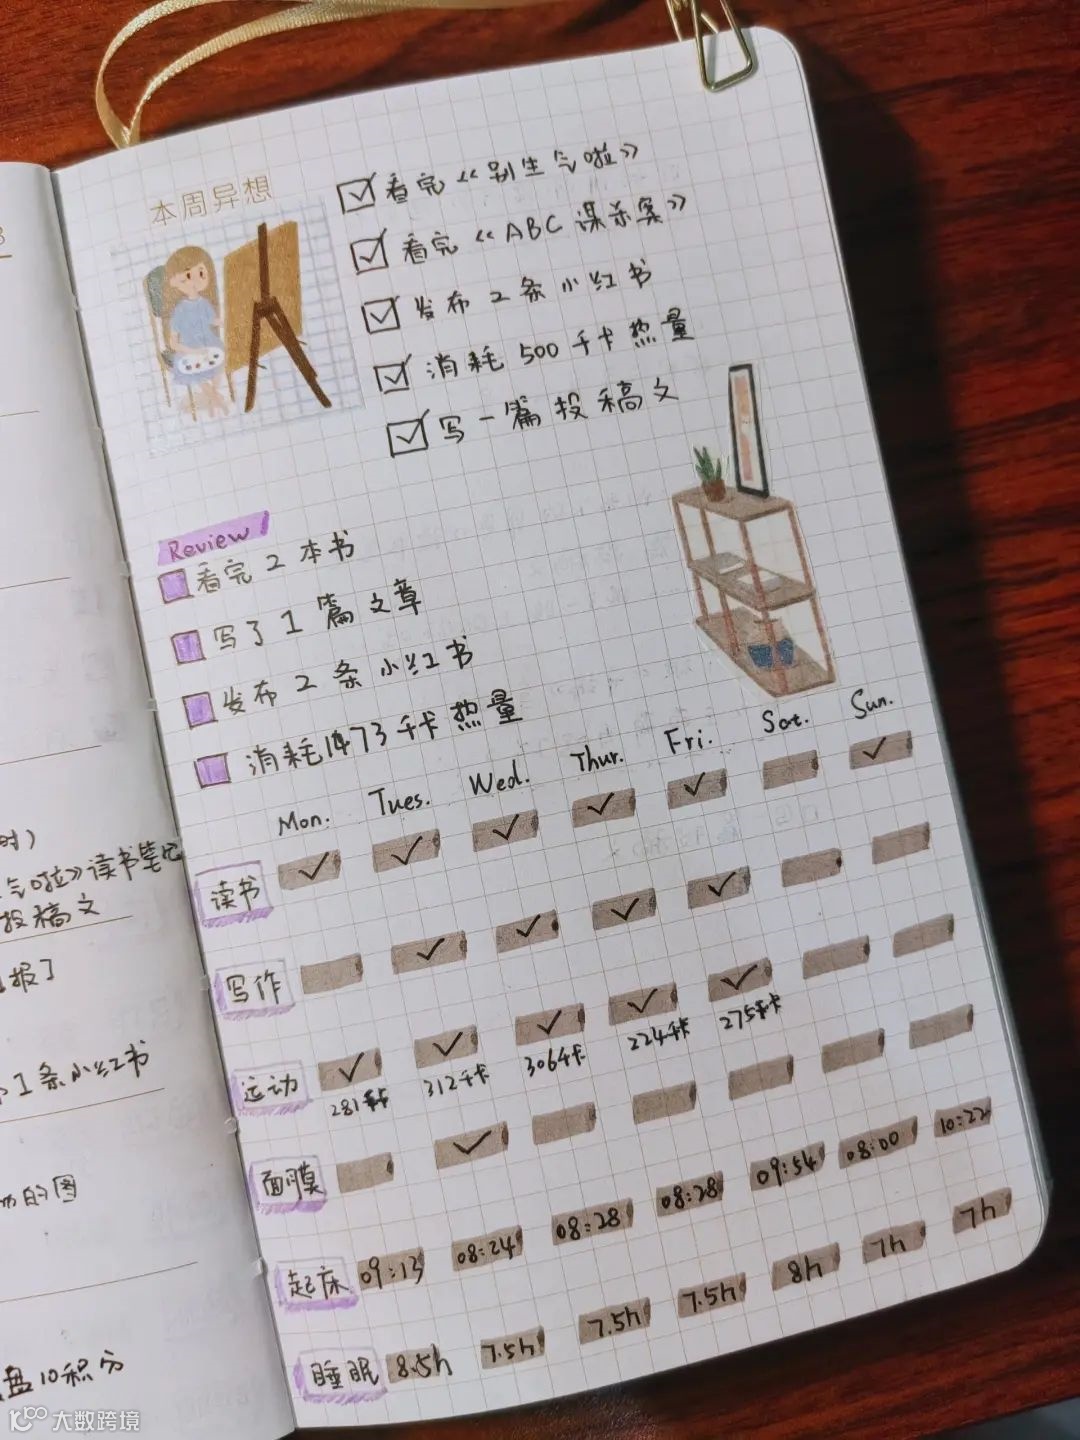 本周异想
看完《别生气啦》
看完《ABC谋杀案》
发布2条小红书
消耗500千卡热量
写一篇投稿文
Review
看完2本书
写了1篇文章
发布2条小红书
消耗1473千卡热量
Mon. Tues. Wed. Thur. Fri. Sat. Sun.
读书
写作
运动 281千卡 312千卡 306千卡 224千卡 275千卡
面膜
起床 09:13 08:24 08:28 08:28 09:54 08:00 10:22
睡眠 8.5h 7.5h 7.5h 7.5h 8h 7h 7h
时)
气啦》读书笔记
投稿文
报了
1条小红书
的图
盘10积分
大数跨境